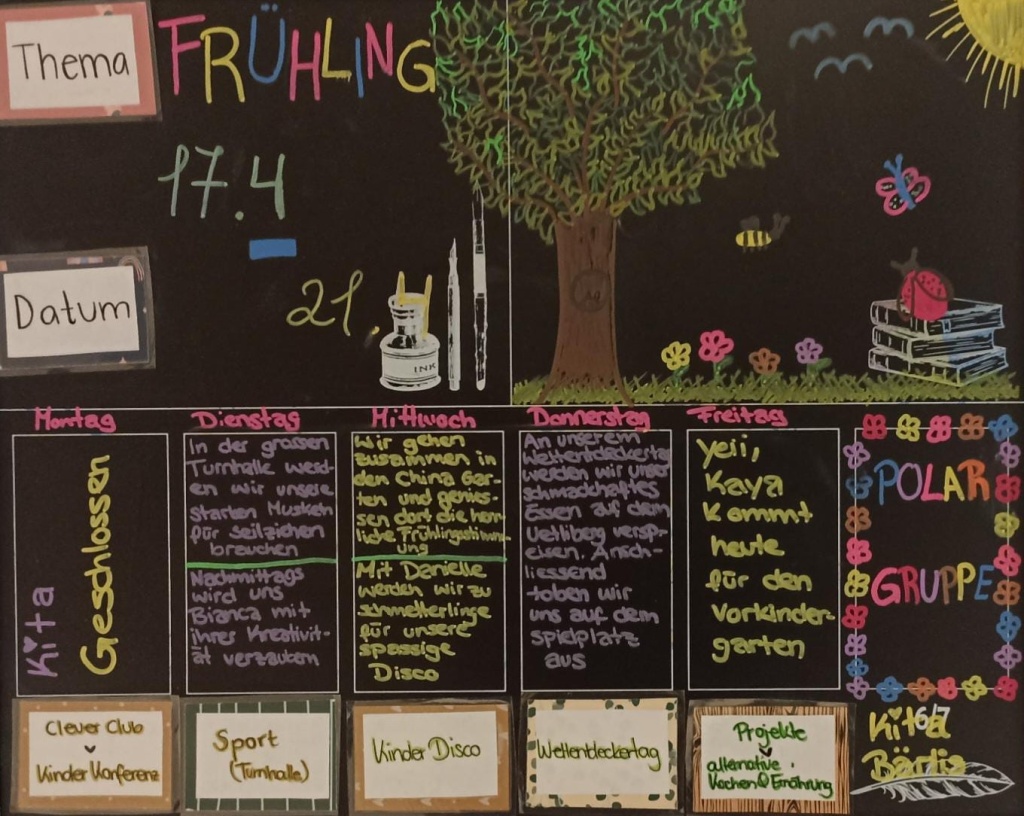 Thema
FRÜHLING
17.4
-
21.4
Datum
INK
Montag
Kita
Geschlossen
Dienstag
In der grossen
Turnhalle werd-
en wir unsere
starken Muskeln
für seilziehen
brauchen
Nachmittags
wird uns
Bianca mit
ihrer Kreativit-
ät verzaubern
Mittwoch
Wir gehen
zusammen in
den China Gar-
ten und genies-
sen dort die herr-
liche Frühlingsstimm-
ung
Mit Danielle
werden wir zu
schmetterlinge
für unsere
spassige
Disco
Donnerstag
An unserem
Weltentdeckertag
werden wir unser
schmackhaftes
Essen auf dem
Uetliberg versp-
eisen. Ansch-
liessend
toben wir
uns auf dem
spielplatz
aus
Freitag
Yeii,
Kaya
kommt
heute
für den
Vorkinder-
garten
POLAR
GRUPPE
Clever Club
Kinder Konferenz
Sport
(Turnhalle)
Kinder Disco
Weltentdeckertag
Projekte
alternative
Kochen & Ernährung
6/7
Kita
Bärlis